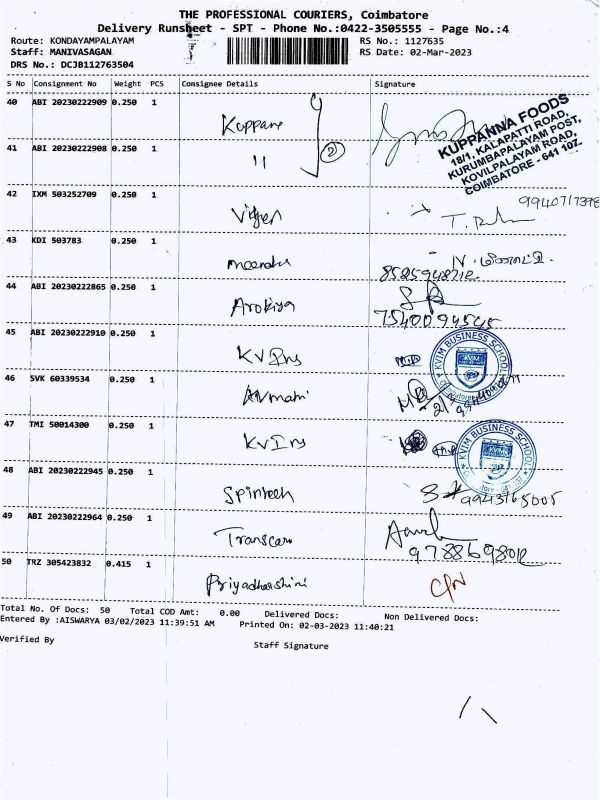 THE PROFESSIONAL COURIERS, Coimbatore
Delivery Runsheet - SPT - Phone No.:0422-3505555 - Page No.:4
Route: KONDAYAMPALAYAM RS No.: 1127635
Staff: MANIVASAGAN RS Date: 02-Mar-2023
DRS No.: DCJB112763504
S No Consignment No Weight PCS Consignee Details Signature
40 ABI 20230222909 0.250 1 Kuppana
KUPPANNA FOODS
18/1, KALAPATTI ROAD,
KURUMBAPALAYAM POST,
KOVILPALAYAM ROAD,
COIMBATORE - 641 107.
41 ABI 20230222908 0.250 1 " 2
42 IXM 503252709 0.250 1
43 KDI 503783 0.250 1 meenaka
44 ABI 20230222865 0.250 1 Arokiya
45 ABI 20230222910 0.250 1 KV Ins
KVIM BUSINESS SCHOOL
46 SVK 60339534 0.250 1
47 TMI 50014300 0.250 1 KV Ins
KVIM BUSINESS SCHOOL
48 ABI 20230222945 0.250 1 Spintech 9943165005
49 ABI 20230222964 0.250 1 Transcare
50 TRZ 305423832 0.415 1 Priyadharshini
Total No. Of Docs: 50 Total COD Amt: 0.00 Delivered Docs: Non Delivered Docs:
Entered By :AISWARYA 03/02/2023 11:39:51 AM Printed On: 02-03-2023 11:40:21
Verified By Staff Signature